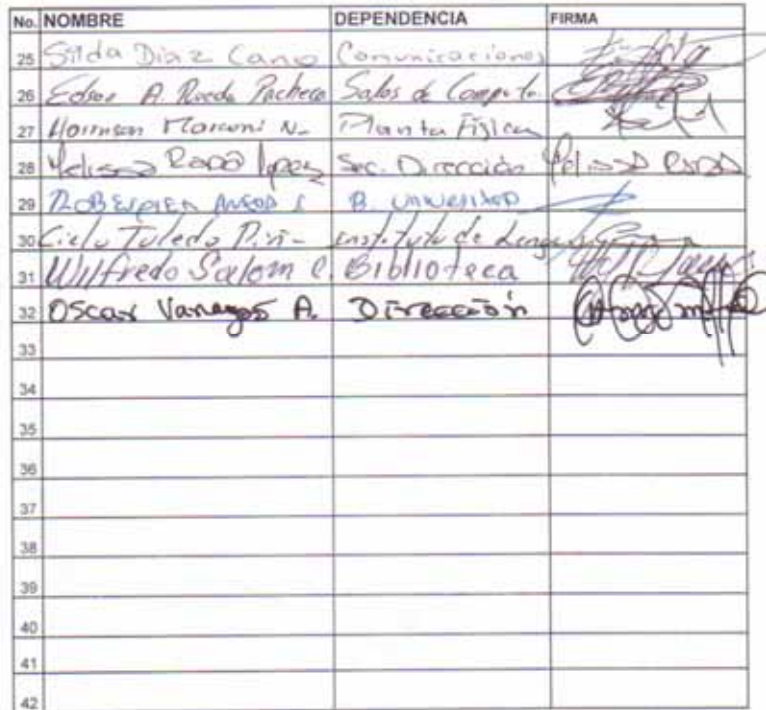 No. NOMBRE DEPENDENCIA FIRMA
25 Silda Diaz Cano Comunicaciones
26 Edson A. Rueda Pacheco Salas de Computo.
27 Marconi N. Planta Física
28 Melissa Rada lopez Sec. Dirección Melissa Rada
29 B.
30 Cielo Toledo instituto de Lenguas
31 Wilfredo Salom C. Biblioteca
32 Oscar Vanegas A. Dirección
33
34
35
36
37
38
39
40
41
42